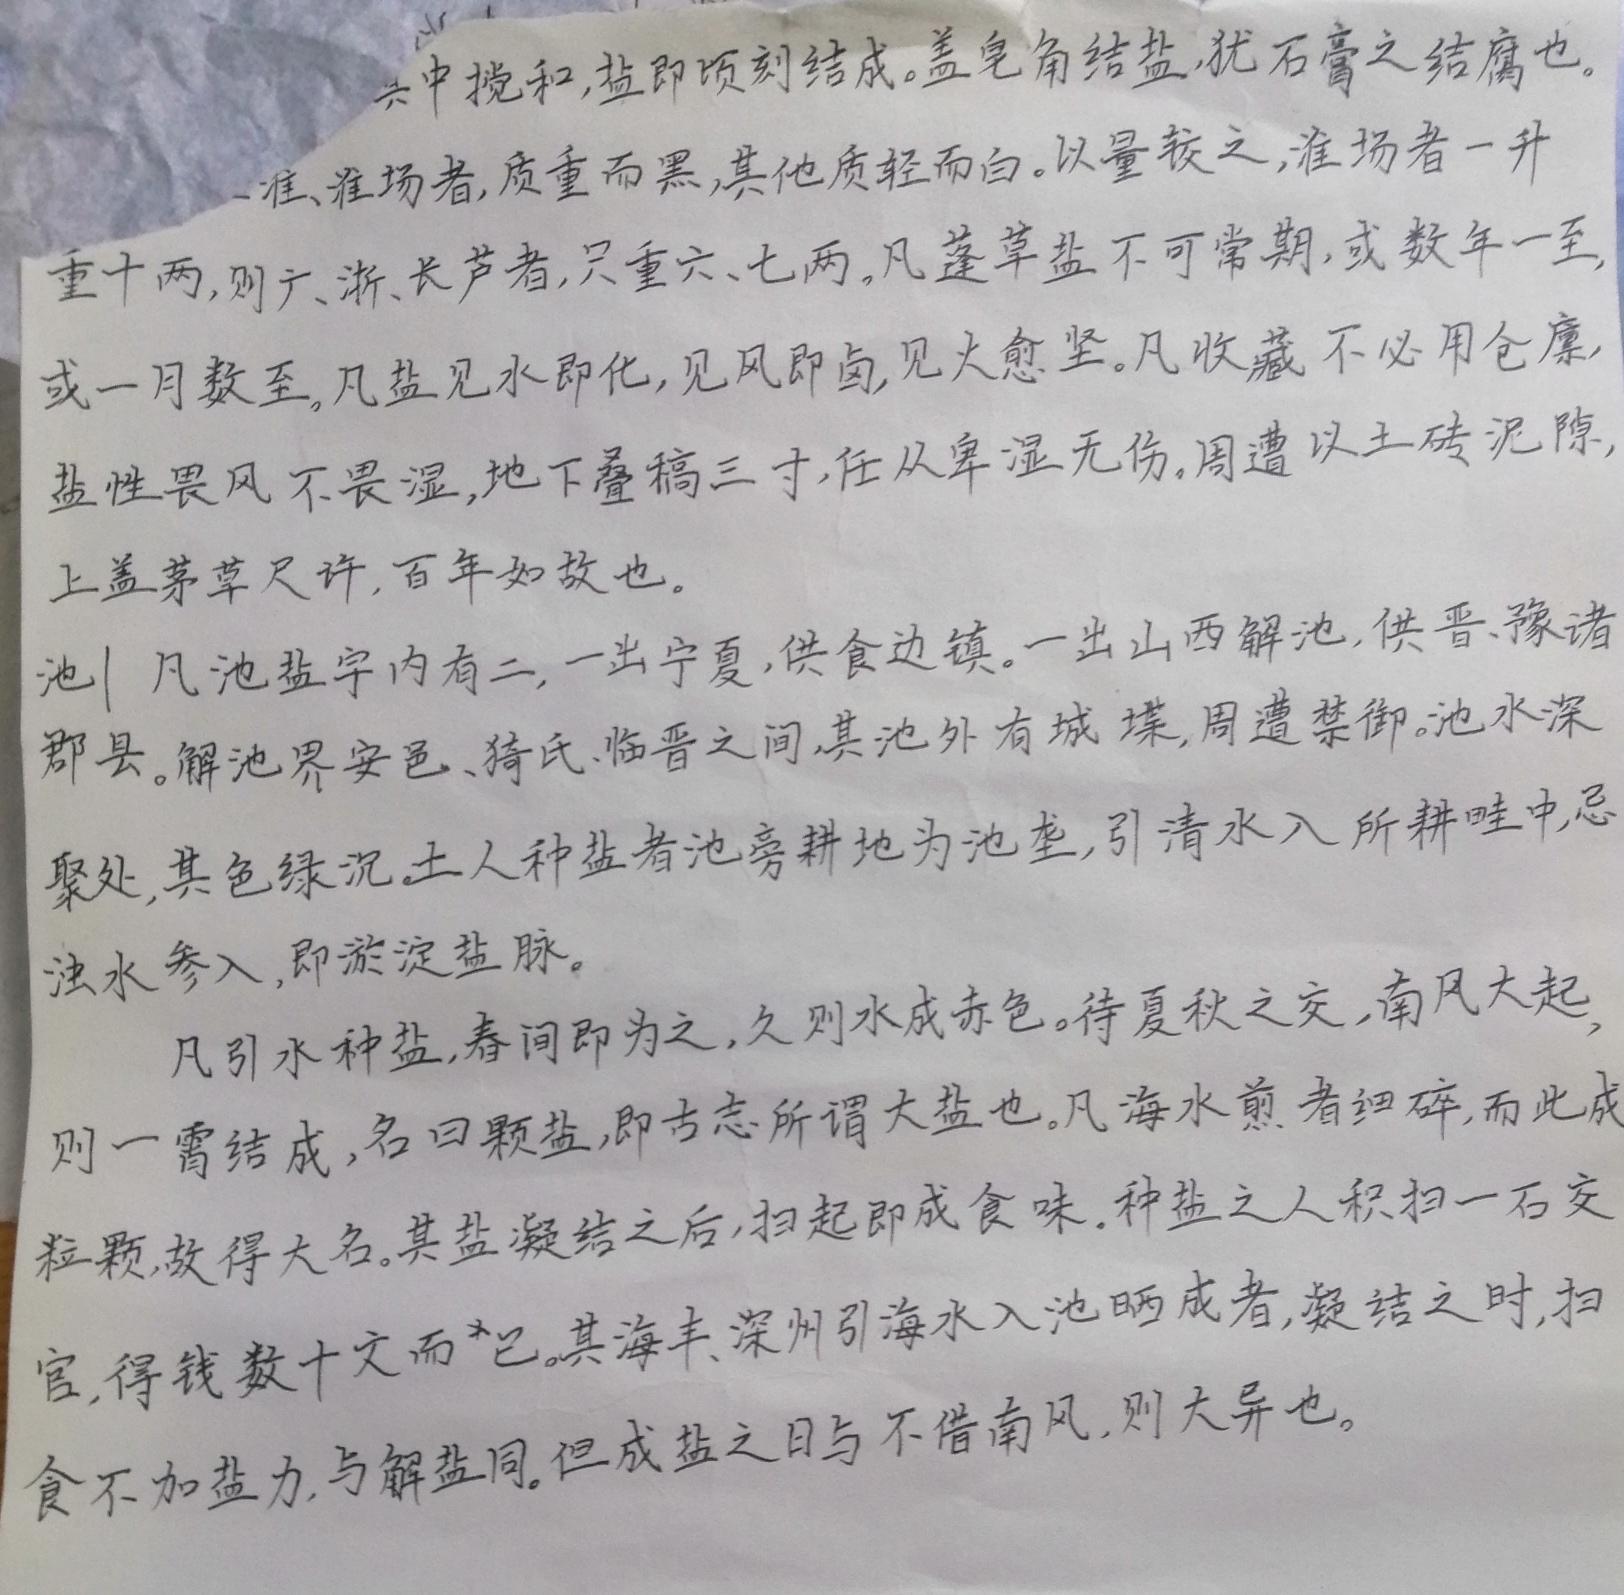 其中搅和,盐即顷刻结成。盖皂角结盐,犹石膏之结腐也。
淮、淮场者,质重而黑,其他质轻而白。以量较之,淮场者一升
重十两,则广、浙、长芦者,只重六、七两。凡蓬草盐不可常期,或数年一至,
或一月数至。凡盐见水即化,见风即卤,见火愈坚。凡收藏不必用仓廪,
盐性畏风不畏湿,地下叠稿三寸,任从卑湿无伤。周遭以土砖泥隙,
上盖茅草尺许,百年如故也。
池| 凡池盐宇内有二,一出宁夏,供食边镇。一出山西解池,供晋、豫诸
郡县。解池界安邑、猗氏、临晋之间,其池外有城堞,周遭禁御。池水深
聚处,其色绿沉。土人种盐者池旁耕地为池垄,引清水入所耕畦中,忌
浊水参入,即淤淀盐脉。
凡引水种盐,春间即为之,久则水成赤色。待夏秋之交,南风大起,
则一霄结成,名曰颗盐,即古志所谓大盐也。凡海水煎者细碎,而此成
粒颗,故得大名。其盐凝结之后,扫起即成食味.种盐之人积扫一石交
官,得钱数十文而已。其海丰、深州引海水入池晒成者,凝结之时,扫
食不加盐力,与解盐同。但成盐之日与不借南风,则大异也。